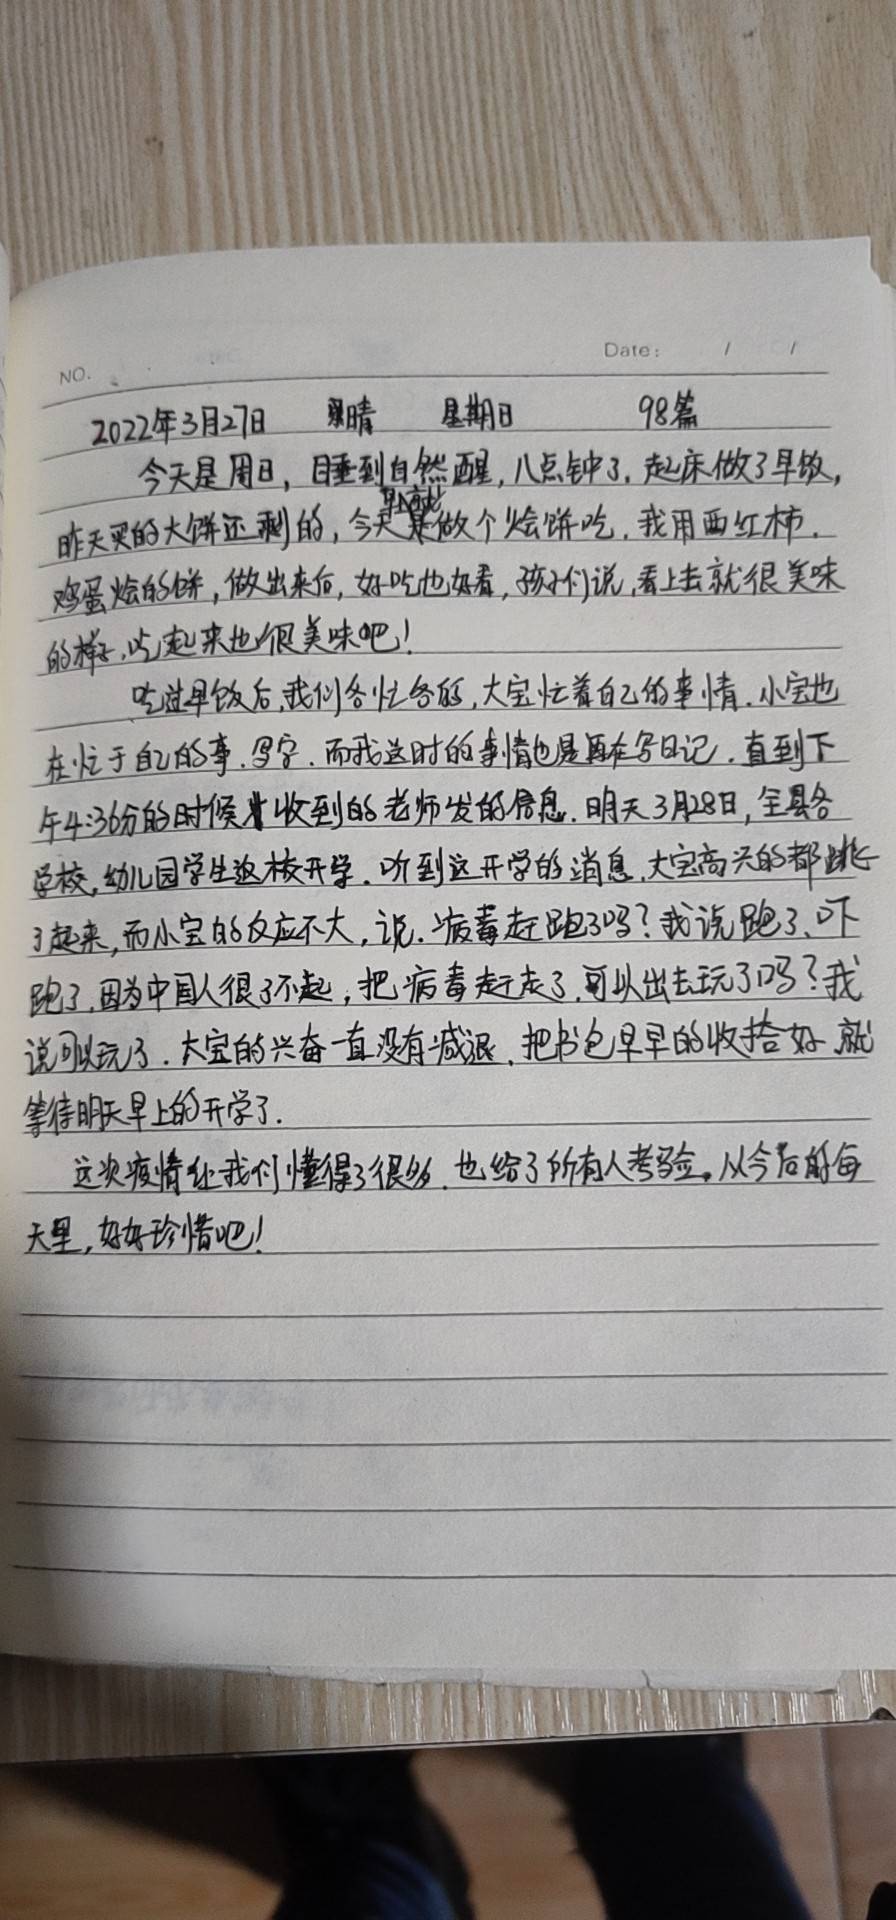 NO.
Date: / /
2022年3月27日 晴 星期日 98篇
今天是周日，睡到自然醒，八点钟了．起床做了早饭，
昨天买的大饼还剩的，今天早就做个烩饼吃．我用西红柿．
鸡蛋烩的饼，做出来后，好吃也好看，孩子们说，看上去就很美味
的样子，吃起来也很美味吧！
吃过早饭后，我们各忙各的，大宝忙着自己的事情．小宝也
在忙于自己的事．写字．而我这时的事情也是再在写日记．直到下
午4:36分的时候收到的老师发的信息．明天3月28日，全县各
学校，幼儿园学生返校开学．听到这开学的消息．大宝高兴的都跳
了起来，而小宝的反应不大，说．病毒赶跑了吗？我说跑了、吓
跑了．因为中国人很了不起，把病毒赶走了．可以出去玩了吗？我
说可以玩了．大宝的兴奋一直没有减退．把书包早早的收拾好 就
等待明天早上的开学了．
这次疫情让我们懂得了很多．也给了所有人考验。从今后的每
天里，好好珍惜吧！